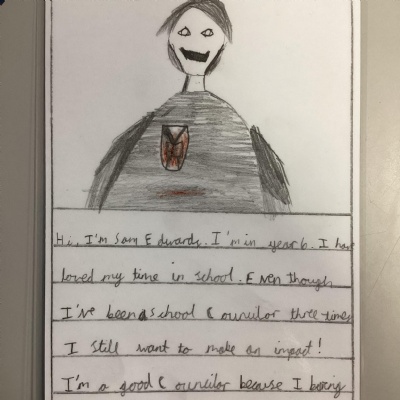 Hi, I'm Sam Edwards. I'm in year 6. I have
loved my time in school. Even though
I've been a school Councilor three times
I still want to make an impact!
I'm a good Councilor because I